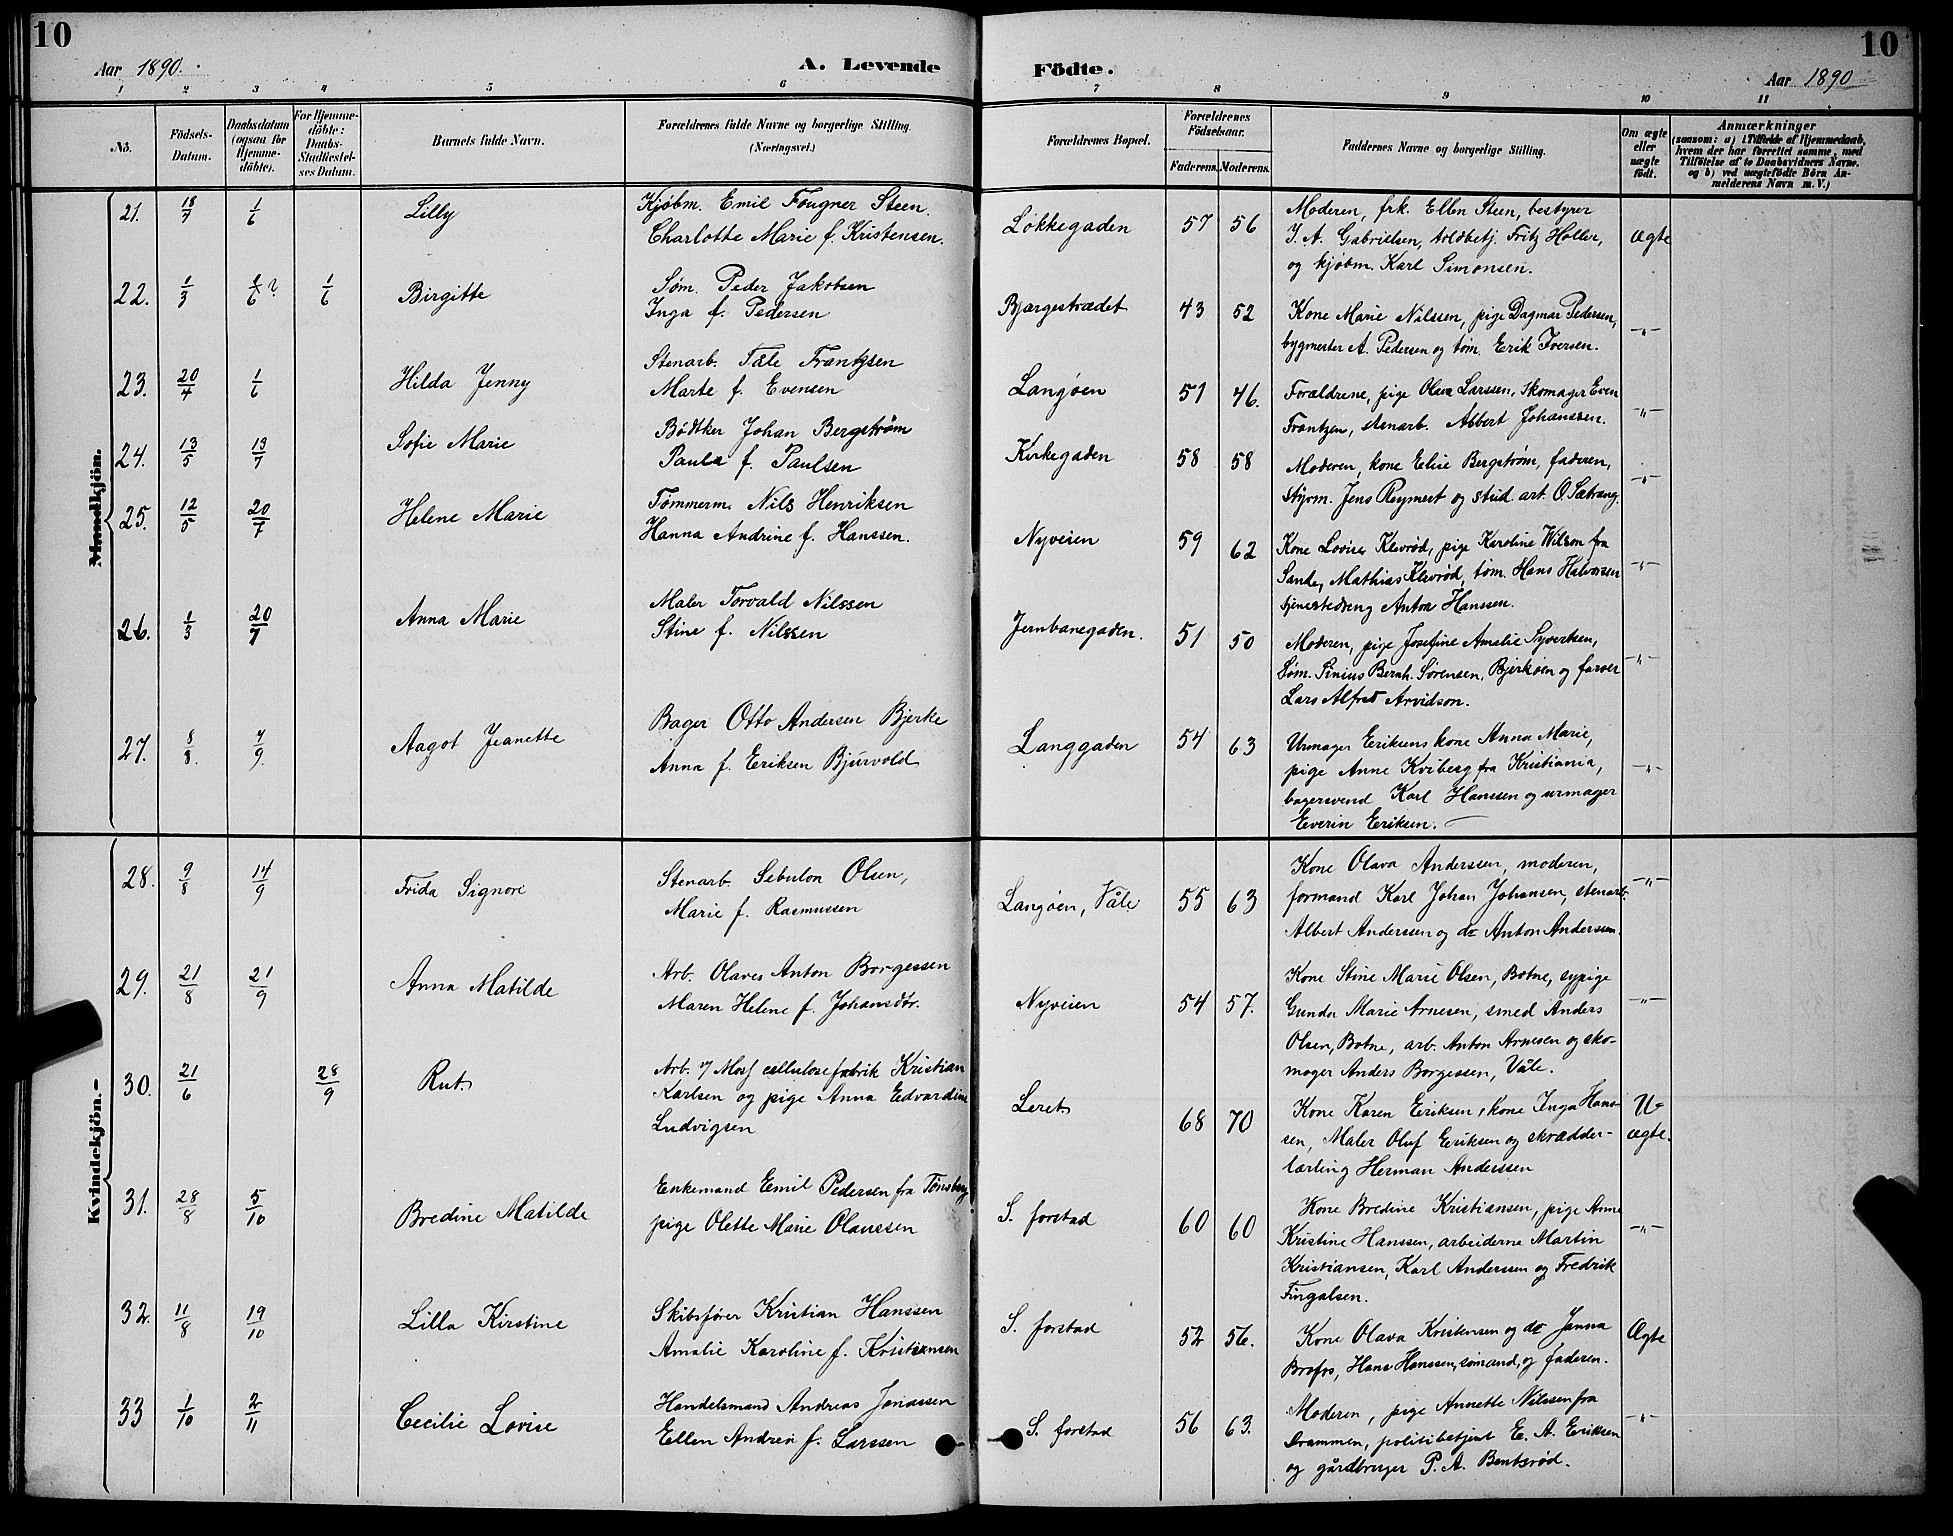 10
Aar 1890.
A. Levende
Födte.
Aar 1890
10
1 2 3 4 5 6 7 8 9 10 11
No.
Födsels-Datum.
Daabsdatum (ogsaa for Hjemme-döbte).
For Hjemme-döbte: Daabs-Stadfæstelses Datum.
Barnets fulde Navn.
Forældrenes fulde Navne og borgerlige Stilling. (Næringsvei.)
Forældrenes Bopæl.
Forældrenes Födselsaar.
Faderens. Moderens.
Faddernes Navne og borgerlige Stilling.
Om ægte eller uægte födt.
Anmærkninger
(saasom: a) i Tilfælde af Hjemmedaab, hvem der har forrettet samme, med Tilföielse af to Daabsvidners Navne. og b) ved uægtefödte Börn Anmelderens Navn m. V.)
Mandkjön.
Kvindekjön.
21. 18/7 1/6 Lilly
Kjøbm. Emil Fougner Steen.
Charlotte Marie f. Kristensen.
Løkkegaden 57 56
Moderen, frk. Ellen Steen, bestyrer
J. A. Gabrielsen, toldbetj. Fritz Holler,
og kjøbm. Karl Simonsen.
Ægte
22. 1/3 1/6? 1/6 Birgitte
Søm. Peder Jakobsen
Inga f. Pedersen
Bjærgestrædet 43 52
Kone Marie Nilssen, pige Dagmar Pedersen,
bygmester A. Pedersen og tøm. Erik Iversen.
-"-
23. 20/4 1/6 Hilda Jenny
Stenarb. Tåle Frantzsen
Marte f. Evensen
Langøen 51 46.
Forældrene, pige Olava Larssen, Skomager Even
Frantzen, stenarb. Albert Johanssen.
-"-
24. 13/5 13/7 Sofie Marie
Bødtker Johan Bergstrøm
Paula f. Paulsen
Kirkegaden 58 58
Moderen, kone Elise Bergstrøm, faderen,
styrm. Jens Reymert og stud. art. O. Sætrang.
-"-
25. 12/5 20/7 Helene Marie
Tømmerm. Nils Henriksen
Hanna Andrine f. Hanssen.
Nyveien 59 62
Kone Lovise Klevrød, pige Karoline Wilson fra
Sande, Mathias Klevrød, tøm. Hans Halvorsen
tjenestedreng Anton Hanssen.
-"-
26. 1/3 20/7 Anna Marie
Maler Torvald Nilssen
Stine f. Nilssen
Jernbanegaden. 51 50
Moderen, pige Josefine Amalie Syvertsen,
Søm. Sinius Bernh. Sørensen, Bjerkøen og farver
Lars Alfred Arvidson.
-"-
27. 8/8. 7/9. Aagot Jeanette
Bager Otto Andersen Bjerke
Anna f. Eriksen Bjurvold
Langgaden 54 63
Urmager Eriksens kone Anna Marie,
pige Anne Kviberg fra Kristiania,
bagersvend Karl Hanssen og urmager
Everin Eriksen.
-"-
28. 9/8 14/9 Frida Signore
Stenarb. Sebulon Olsen,
Marie f. Rasmussen
Langøen, Våle 55 63
Kone Olava Anderssen, moderen,
formand Karl Johan Johansen, stenarb.
Albert Anderssen og do Anton Anderssen.
-"-
29. 21/8 21/9 Anna Matilde
Arb. Olaves Anton Borgessen
Maren Helene f. Johansdtr.
Nyveien 54 57.
Kone Stine Marie Olsen, Botne, sypige
Gunda Marie Arnesen, smed Anders
Olsen, Botne, arb. Anton Arnesen og sko-
mager Anders Borgessen, Våle.
-"-
30. 21/6 28/9 Rut
Arb. v/ Moss cellulosefabrik Kristian
Karlsen og pige Anna Edvardine
Ludvigsen
Leret 68 70
Kone Karen Eriksen, kone Inga Hans-
sen, Maler Oluf Eriksen og skrædder-
lærling Herman Anderssen
U-ægte.
31. 28/8 5/10 Bredine Matilde
Enkemand Emil Pedersen fra Tønsberg
pige Olette Marie Olaussen
S. forstad 60 60
Kone Bredine Kristiansen, pige Anne
Kristine Hanssen, arbeiderne Martin
Kristiansen, Karl Anderssen og Fredrik
Fingalsen.
-"-
32. 11/8 19/10 Lilla Kirstine
Skibsfører Kristian Hanssen
Amalie Karoline f. Kristiansen
S. forstad 52 56.
Kone Olava Kristensen og do Janna
Brofos, Hans Hanssen, sømand, og faderen.
Ægte
33 1/10 2/11 Cecilie Lovise
Handelsmand Andreas Jonassen
Ellen Andrea f. Larssen
S. forstad 56 63.
Moderen, pige Annette Nilssen fra
Drammen, politibetjent E. A. Eriksen
og gårdbruger P. A. Bentsrød.
-"-